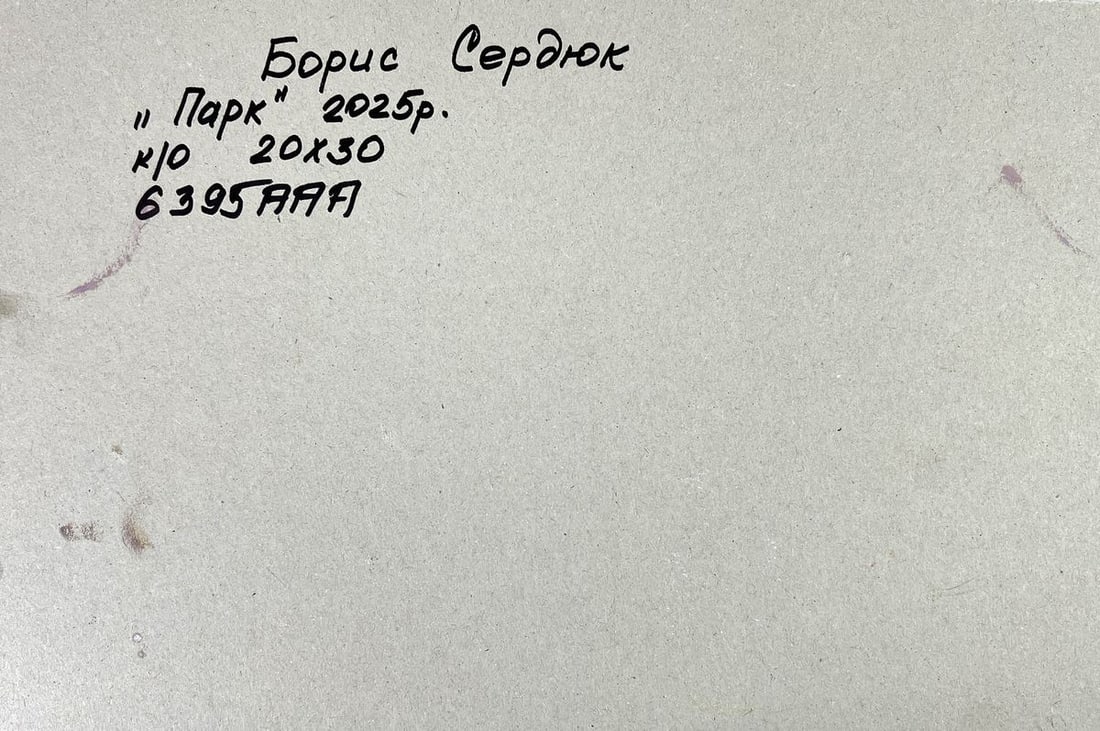 Борис Сердюк
„Парк" 2025р.
к/о 20х30
6395ААА